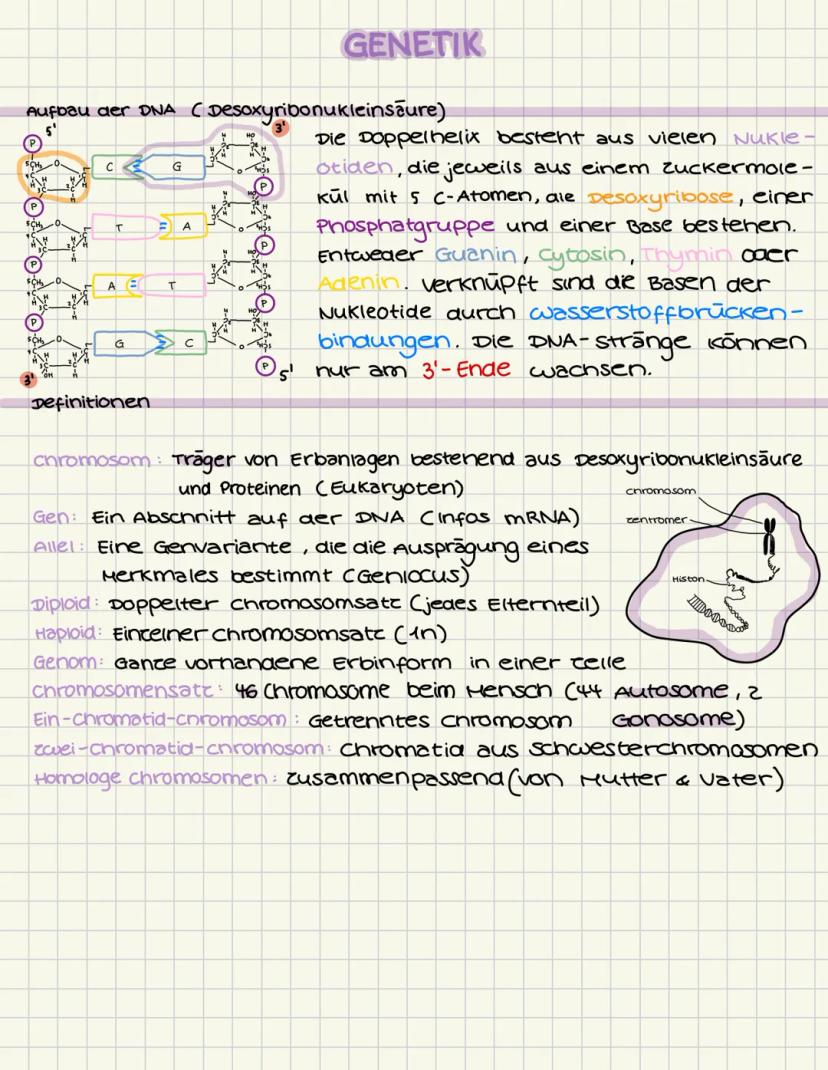 GENETIK
Aufbau der DNA (Desoxyribonukleinsäure)
5'
3'
P
C
G
P
P
T
A
P
P
A
T
P
P
G
C
P
5'
3'
Die Doppelhelix besteht aus vielen Nukle-
otiden, die jeweils aus einem Zuckermole-
kül mit 5 C-Atomen, die Desoxyribose, einer
Phosphatgruppe und einer Base bestehen.
Entweder Guanin, Cytosin, Thymin oder
Adenin. Verknüpft sind die Basen der
Nukleotide durch Wasserstoffbrücken-
bindungen. Die DNA-Stränge können
nur am 3'-Ende wachsen.
Definitionen
Chromosom: Träger von Erbanlagen bestehend aus Desoxyribonukleinsäure
und Proteinen (Eukaryoten)
Gen: Ein Abschnitt auf der DNA (Infos mRNA)
Allel: Eine Genvariante, die die Ausprägung eines
Merkmales bestimmt (Genlocus)
Diploid: Doppelter Chromosomsatz (jedes Elternteil)
Haploid: Einzelner Chromosomsatz (1n)
Genom: Ganze vorhandene Erbinform in einer Zelle
Chromosomensatz: 46 Chromosome beim Mensch (44 Autosome, 2
Gonosome)
Ein-Chromatid-Chromosom: Getrenntes Chromosom
Zwei-Chromatid-Chromosom: Chromatid aus Schwesterchromosomen
Homologe Chromosomen: Zusammenpassend (von Mutter & Vater)
Chromosom
Zentromer
Histon